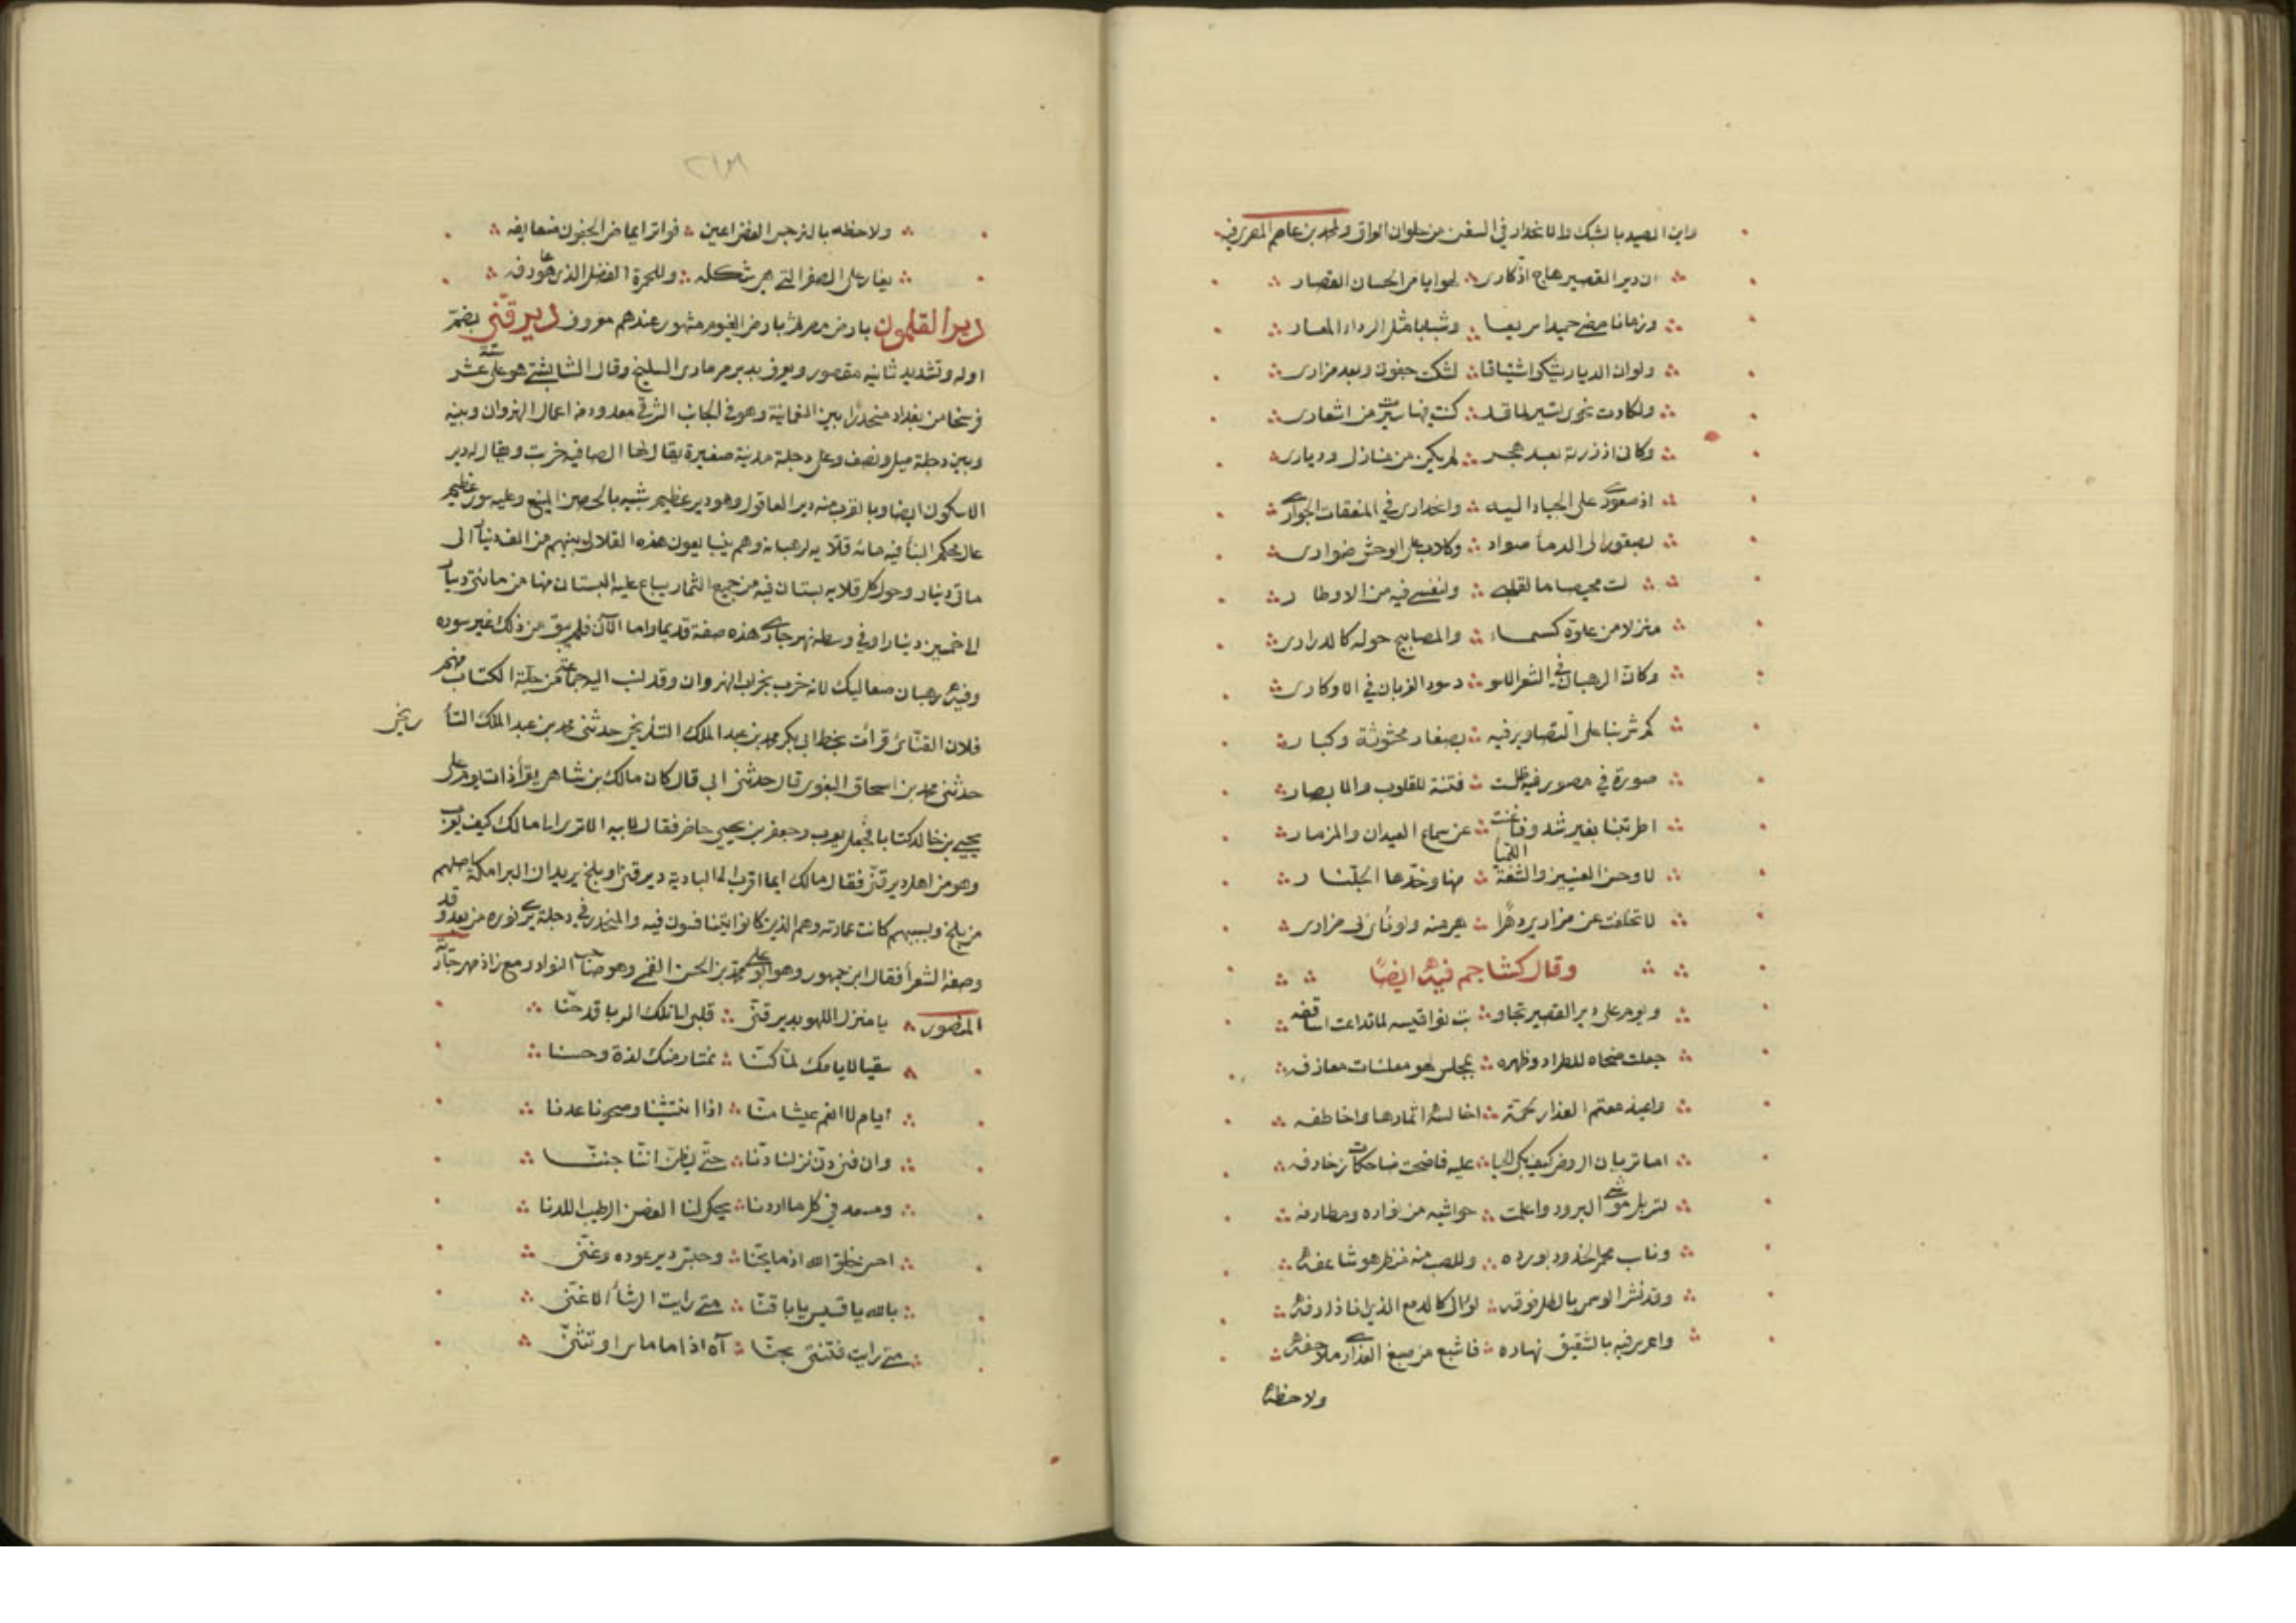 واين الصيد بالشبك والانحدار في السفن من حلوان اتوافق ولمحمد بن عاصم المصري فيه
ان دير القصير هاج اذكاري لهوايا من الحسان القصار
وزمانا مضى حميدا سريعا وشبابا مثل الرداء المعار
ولو ان الديار تشكو اشتياقا لشكت جفوتي وبعد مزاري
ولكادت نحوي تسير لما قد كنت فيها سيرت من اشعاري
وكاني اذ زرته بعد هجر لم يكن من منازلي ودياري
اذ صعودي على الجياد اليه وانحداري في المنعقات الجواري
بصقور الى الدماء صوادي وكلاب على الوحش ضواري
لت محيصا ما لقلبي ولنفسي فيه من الاوطار
منزلا من علوه كسماء والمصابيح حوله كالدراري
وكان الرهبان في الشعر الاسود سود الغربان في الاوكاري
كم شربنا على التصاوير فيه بصغار محثوثة وكبار
صورة في مصور فيه ظلت فتنة للقلوب والابصار
اطربتنا بغير شدو فاغنت عن سماع العيدان والمزمار
لا وحسن العينين والشفة اللميا منها وخدها الجلنار
لا تخلفت عن مزاري ديرا هي منه ولو نأى بي مزاري
وقال كشاجم فيه ايضا
ويوم على دير القصير تجاوبت نواقيسه لما تداعت اساقفه
جعلت ضحاه للطراد وظهره بمجلس لهو معلنات معازفه
واغيد معتم العذار بحمة اخالسه اثمارها واخاطفه
اما تريان الروض كيف بكى الحيا عليه فاضحت ضاحكات زخارفه
تسربل موشي البرود واعلمت حواشيه من نواره ومطارفه
وناب محمر الخدود بورده وللصب منه منظر هو شاعفه
وقد نثر الوسمي بالطل فوقه لؤلؤ كالدمع الذي انا ذارفه
واعرى فيه بالشقيق نهاره فاشبع من صبغ العذارى ملاحفه
ولاحظه
ولاحظه بالنرجس الغض اعين فواتر ايماض الجفون ضعايفه
يغار على الصفر التي هي شكله وللحمرة الفضل الذي هو عارفه
دير القلمون بارض مصر ثم بارض الفيوم مشهور عندهم معروف دير قنى بضم
اوله وتشديد ثانيه مقصور ويعرف بدير مر ماري السليخ وقال الشابشتي هو على ستة عشر
فرسخا من بغداد منحدرا بين النعمانية وهو في الجانب الشرقي معدود من اعمال النهروان وبينه
وبين دجلة ميل ونصف وعلى دجلة مدينة صغيرة يقال لها الصافية خربت ويقال له دير
الاسكون ايضا وبالقرب منه دير العاقول وهو دير عظيم شبيه بالحصن المنيع وعليه سور عظيم
عال محكم البناء فيه مائة قلاية لرهبانه وهم يتبايعون هذه القلالي بينهم من الف دينار الى
مائتي دينار وحول كل قلاية بستان فيه من جميع الثمار يباع غلة البستان منها من مائتي دينار
الى خمسين دينارا وفي وسطه نهر جاري هذه صفة قديما واما الآن فلم يبق من ذلك غير سوره
وفيه رهبان صعاليك كانه خرب بخراب النهروان وقد نسب اليه جماعة من جلة الكتاب منهم
فلان القنائي قرأت بخط ابي بكر محمد بن عبد الملك التأريخي حدثني محمد بن عبد الملك التأ
ريخي
حدثني محمد بن اسحاق البغوي قال حدثني ابي قال كان مالك بن شاهي يقرأ ذات يوم على
يحيى بن خالد كتابا فجعل يعرب وجعفر بن يحيى حاضر فقال لابيه الا ترى ابا مالك كيف يعرب
وهو من اهل دير قنى فقال مالك ايما اقرب الى البادية دير قنى او بلخ يريد ان البرامكة اصلهم
من بلخ وبسببهم كانت عمارته وهم الذين كانوا يتنافسون فيه والمنحدر في دجلة يرى نوره من بعد وقد
وصفه الشعرأ فقال ابن جمهور وهو ابو علي محمد بن الحسن القمي وهو صاحب النوادر مع زاذ مهر جارية
المنصوري يا منزل اللهو بدير قنى قلبي الى تلك الربا قد حنا
سقيا لايامك لما كنا نمتار منك لذة وحسنا
ايام لا انعم عيشا منا اذا انتشينا وصحونا عدنا
وان فنى دن نزلنا دنا حتى يظن اننا جننا
ومسعد في كل ما اردنا يحكي لنا الغصن الرطيب اللدنا
احسن خلق الله اذ ما يحنا وجس زير عوده وغنى
بالله يا قسيس يا با قنا متى رايت الرشأ الاغنى
متى رايت فتنتي يحنا آه اذا ما ماس او تثنى